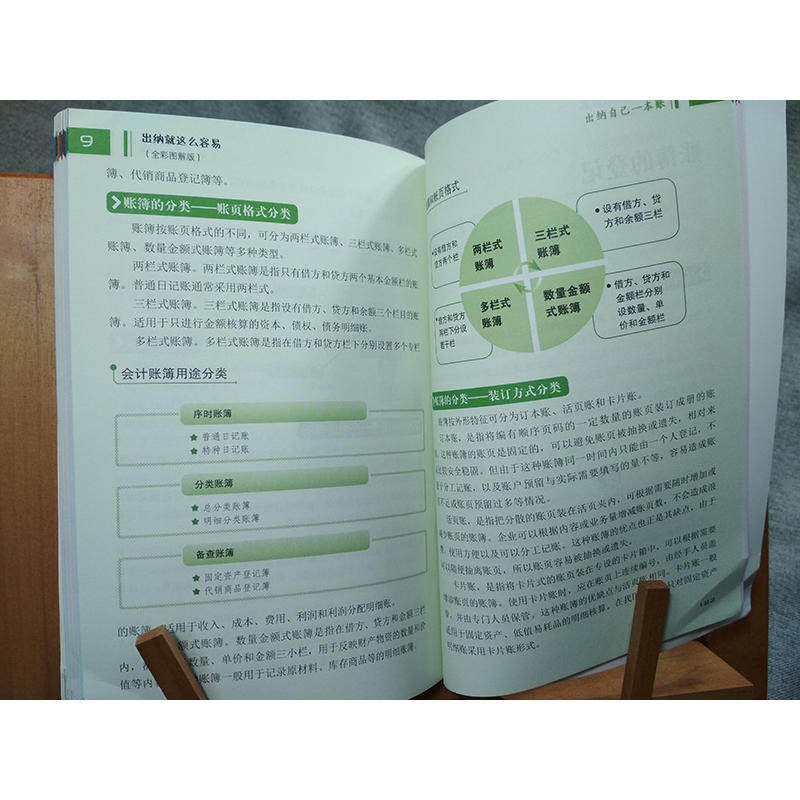 9
出纳就这么容易
(全彩图解版)
簿、代销商品登记簿等。
账簿的分类——账页格式分类
账簿按账页格式的不同，可分为两栏式账簿、三栏式账簿、多栏式
账簿、数量金额式账簿等多种类型。
两栏式账簿。两栏式账簿是指只有借方和贷方两个基本金额栏的账
簿。普通日记账通常采用两栏式。
三栏式账簿。三栏式账簿是指设有借方、贷方和余额三个栏目的账
簿。适用于只进行金额核算的资本、债权、债务明细账。
多栏式账簿。多栏式账簿是指在借方和贷方栏下分别设置多个专栏
会计账簿用途分类
序时账簿
★ 普通日记账
★ 特种日记账
分类账簿
★ 总分类账簿
★ 明细分类账簿
备查账簿
★ 固定资产登记簿
★ 代销商品登记簿
的账簿。适用于收入、成本、费用、利润和利润分配明细账。
额式账簿。数量金额式账簿是指在借方、贷方和余额三栏
内，
数量、单价和金额三小栏，用于反映财产物资的数量和价
值等内
账簿一般用于记录原材料、库存商品等的明细账簿。
出纳自己一本账
账页格式
设有借方和
贷方两个栏
两栏式
账簿
三栏式
账簿
• 设有借方、贷
方和余额三栏
借方和贷方
两栏下分设
若干栏
多栏式
账簿
数量金额
式账簿
• 借方、贷方和
金额栏分别
设数量、单
价和金额栏
账簿的分类——装订方式分类
账簿按外形特征可分为订本账、活页账和卡片账。
订本账，是指将编有顺序页码的一定数量的账页装订成册的账
这种账簿的账页是固定的，可以避免账页被抽换或遗失，相对来
比较安全稳固。但由于这种账簿同一时间内只能由一个人登记，不
于分工记账，以及账户预留与实际需要填写的量不等，容易造成账
不足或账页预留过多等情况。
活页账，是指把分散的账页装在活页夹内，可根据需要随时增加或
减少账页的账簿。企业可以根据内容或业务量增减账页数，不会造成浪
使用方便以及可以分工记账。这种账簿的优点也正是其缺点，由于
可以随便抽离账页，所以账页容易被抽换或遗失。
卡片账，是指将卡片式的账页装在专设的卡片箱中，可以根据需要
增添账页的账簿。使用卡片账时，应在账页上连续编号，由经手人员盖
并由专门人员保管。这种账簿的优缺点与活页账相同。卡片账一般
适用于固定资产、低值易耗品的明细核算。在我国
只对固定资产
明细账采用卡片账形式。
183